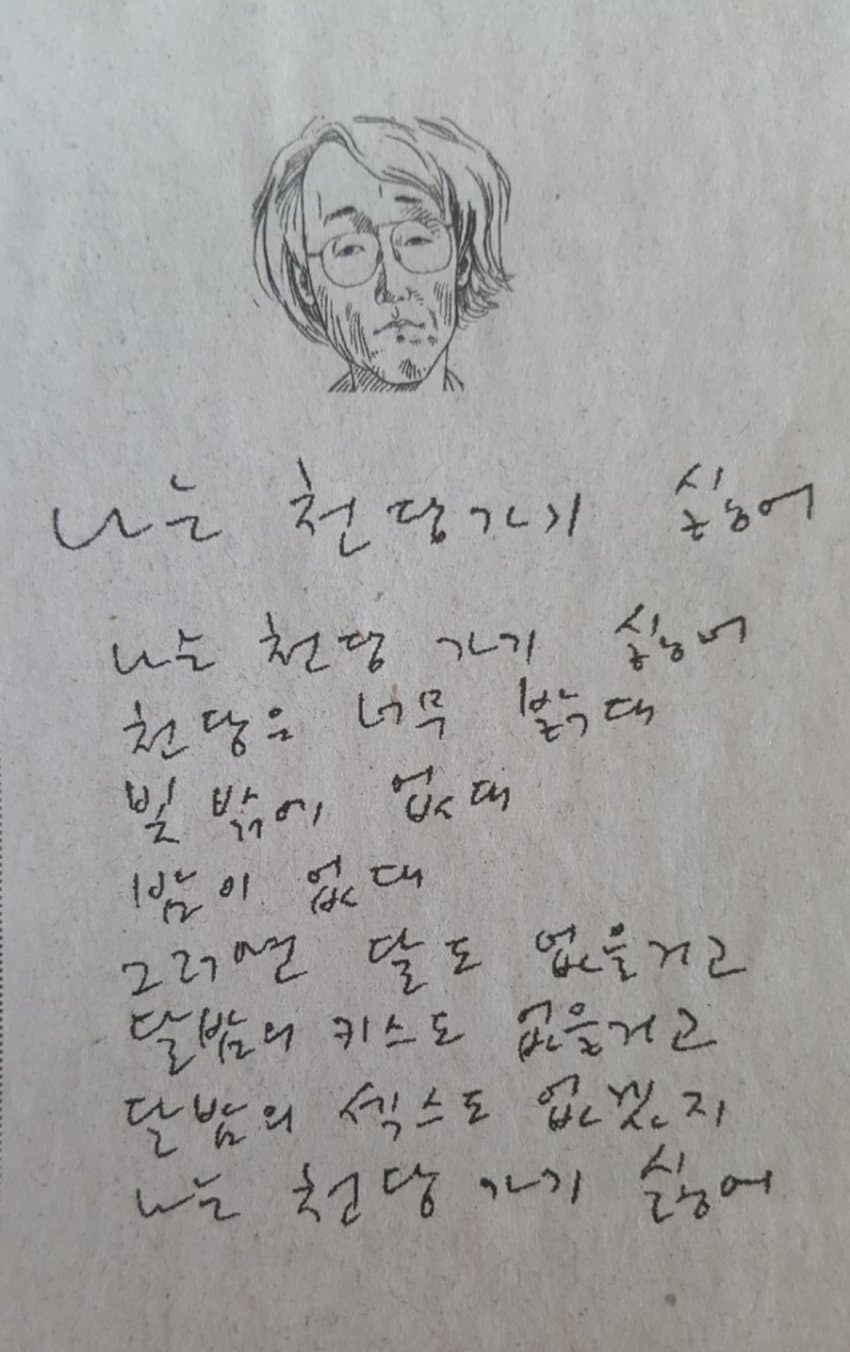 나는 천당가기 싫어
나는 천당 가기 싫어
천당은 너무 밝대
빛 밖에 없대
밤이 없대
그러면 달도 없을거고
달밤의 키스도 없을거고
달밤의 섹스도 없겠지
나는 천당 가기 싫어